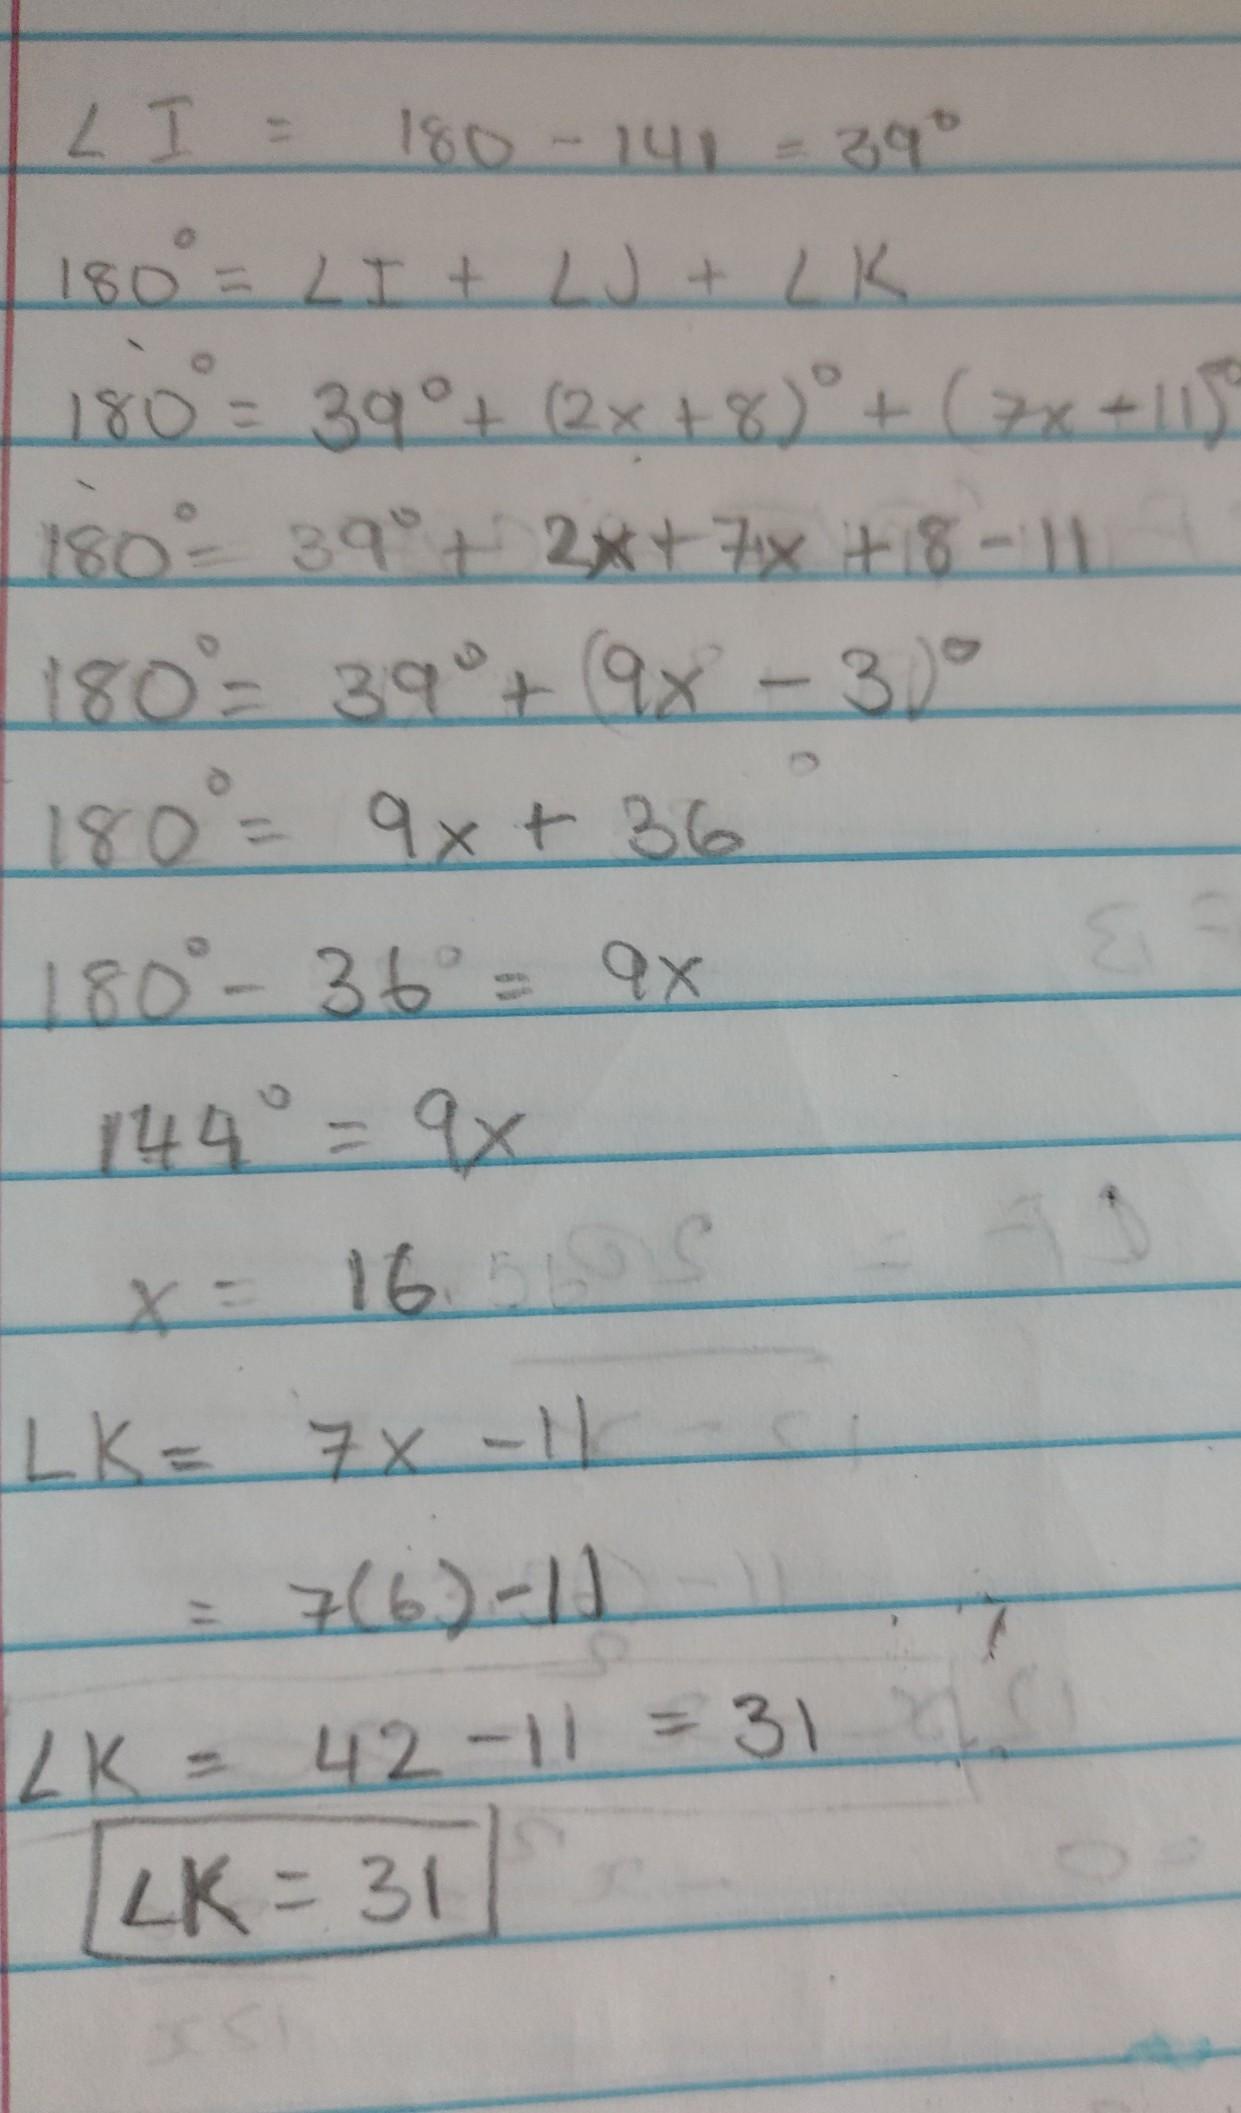 ∠I = 180 - 141 = 39°
180° = ∠I + ∠J + ∠K
180° = 39° + (2x + 8)° + (7x - 11)°
180° = 39° + 2x + 7x + 8 - 11
180° = 39° + (9x - 3)°
180° = 9x + 36°
180° - 36° = 9x
144° = 9x
x = 16
∠K = 7x - 11
= 7(6) - 11
∠K = 42 - 11 = 31
∠K = 31